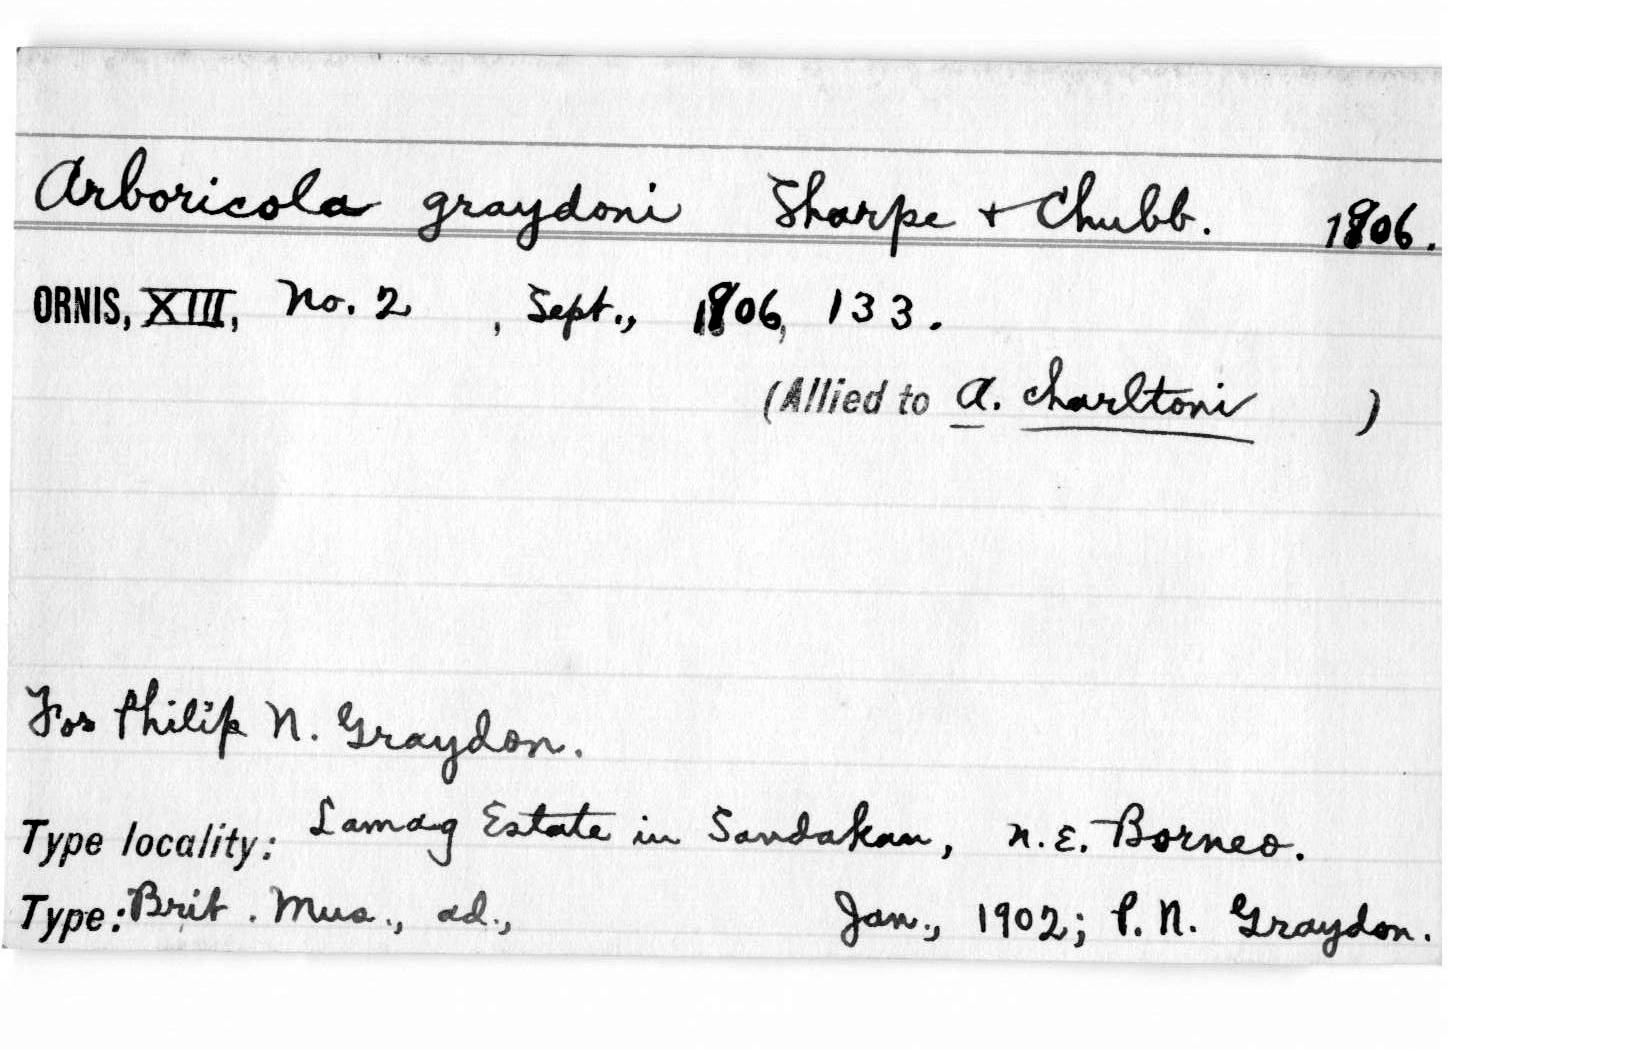 Arboricola graydoni Sharpe + Chubb. 1906.
ORNIS, XIII, No. 2 , Sept., 1906, 133.
(Allied to A. charltoni )
For Philip N. Graydon.
Type locality: Lamag Estate in Sandakan, N.E. Borneo.
Type: Brit. Mus., ad., Jan., 1902; P. N. Graydon.